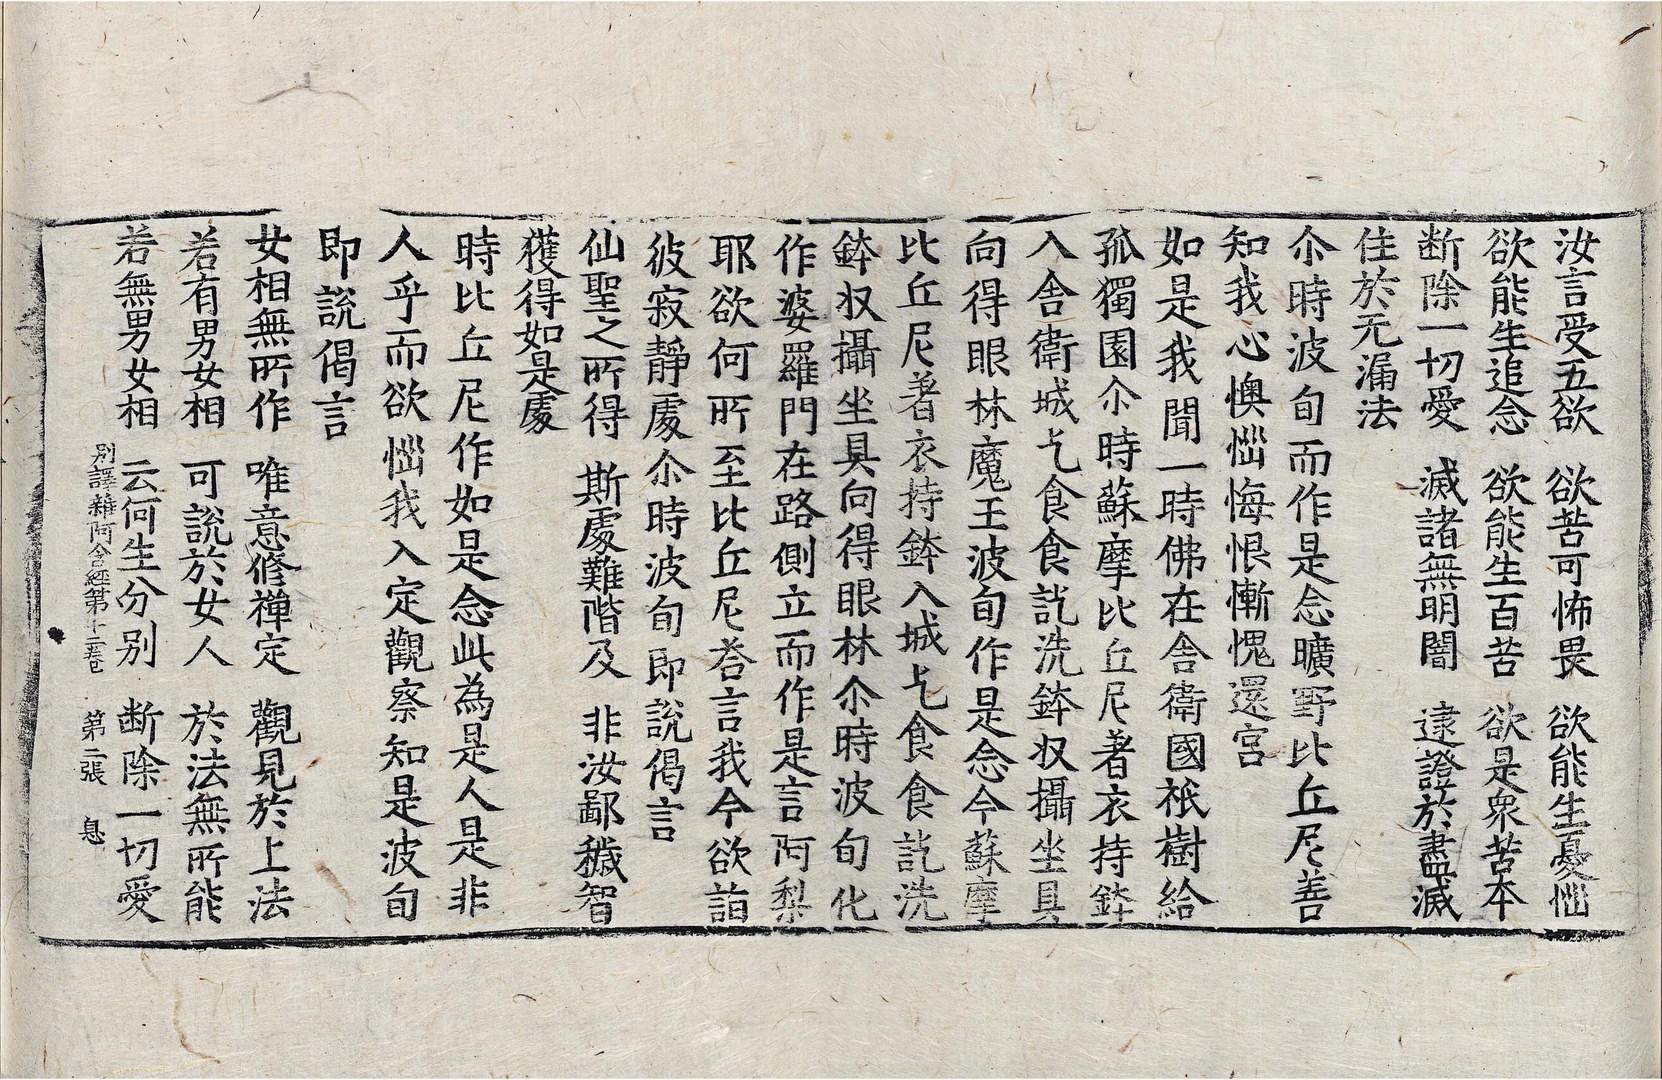 汝言受五欲　欲苦可怖畏　欲能生憂惱
欲能生追念　欲能生百苦　欲是衆苦本
断除一切愛　滅諸無明闇　逮證於盡滅
住於无漏法
尒時波旬而作是念曠野比丘尼善
知我心懊惱悔恨慚愧還宮
如是我聞一時佛在舎衛國祇樹給
孤獨園尒時蘇摩比丘尼著衣持鉢
入舎衛城乞食食訖洗鉢収攝坐具
向得眼林魔王波旬作是念今蘇摩
比丘尼著衣持鉢入城乞食食訖洗
鉢収攝坐具向得眼林尒時波旬化
作婆羅門在路側立而作是言阿梨
耶欲何所至比丘尼荅言我今欲詣
彼寂靜處尒時波旬即說偈言
仙聖之所得　斯處難階及　非汝鄙穢智
獲得如是處
時比丘尼作如是念此為是人是非
人乎而欲惱我入定觀察知是波旬
即說偈言
女相無所作　唯意修禪定　觀見於上法
若有男女相　可說於女人　於法無所能
若無男女相　云何生分別　断除一切愛
別譯雜阿含經第十二卷　第二張　息